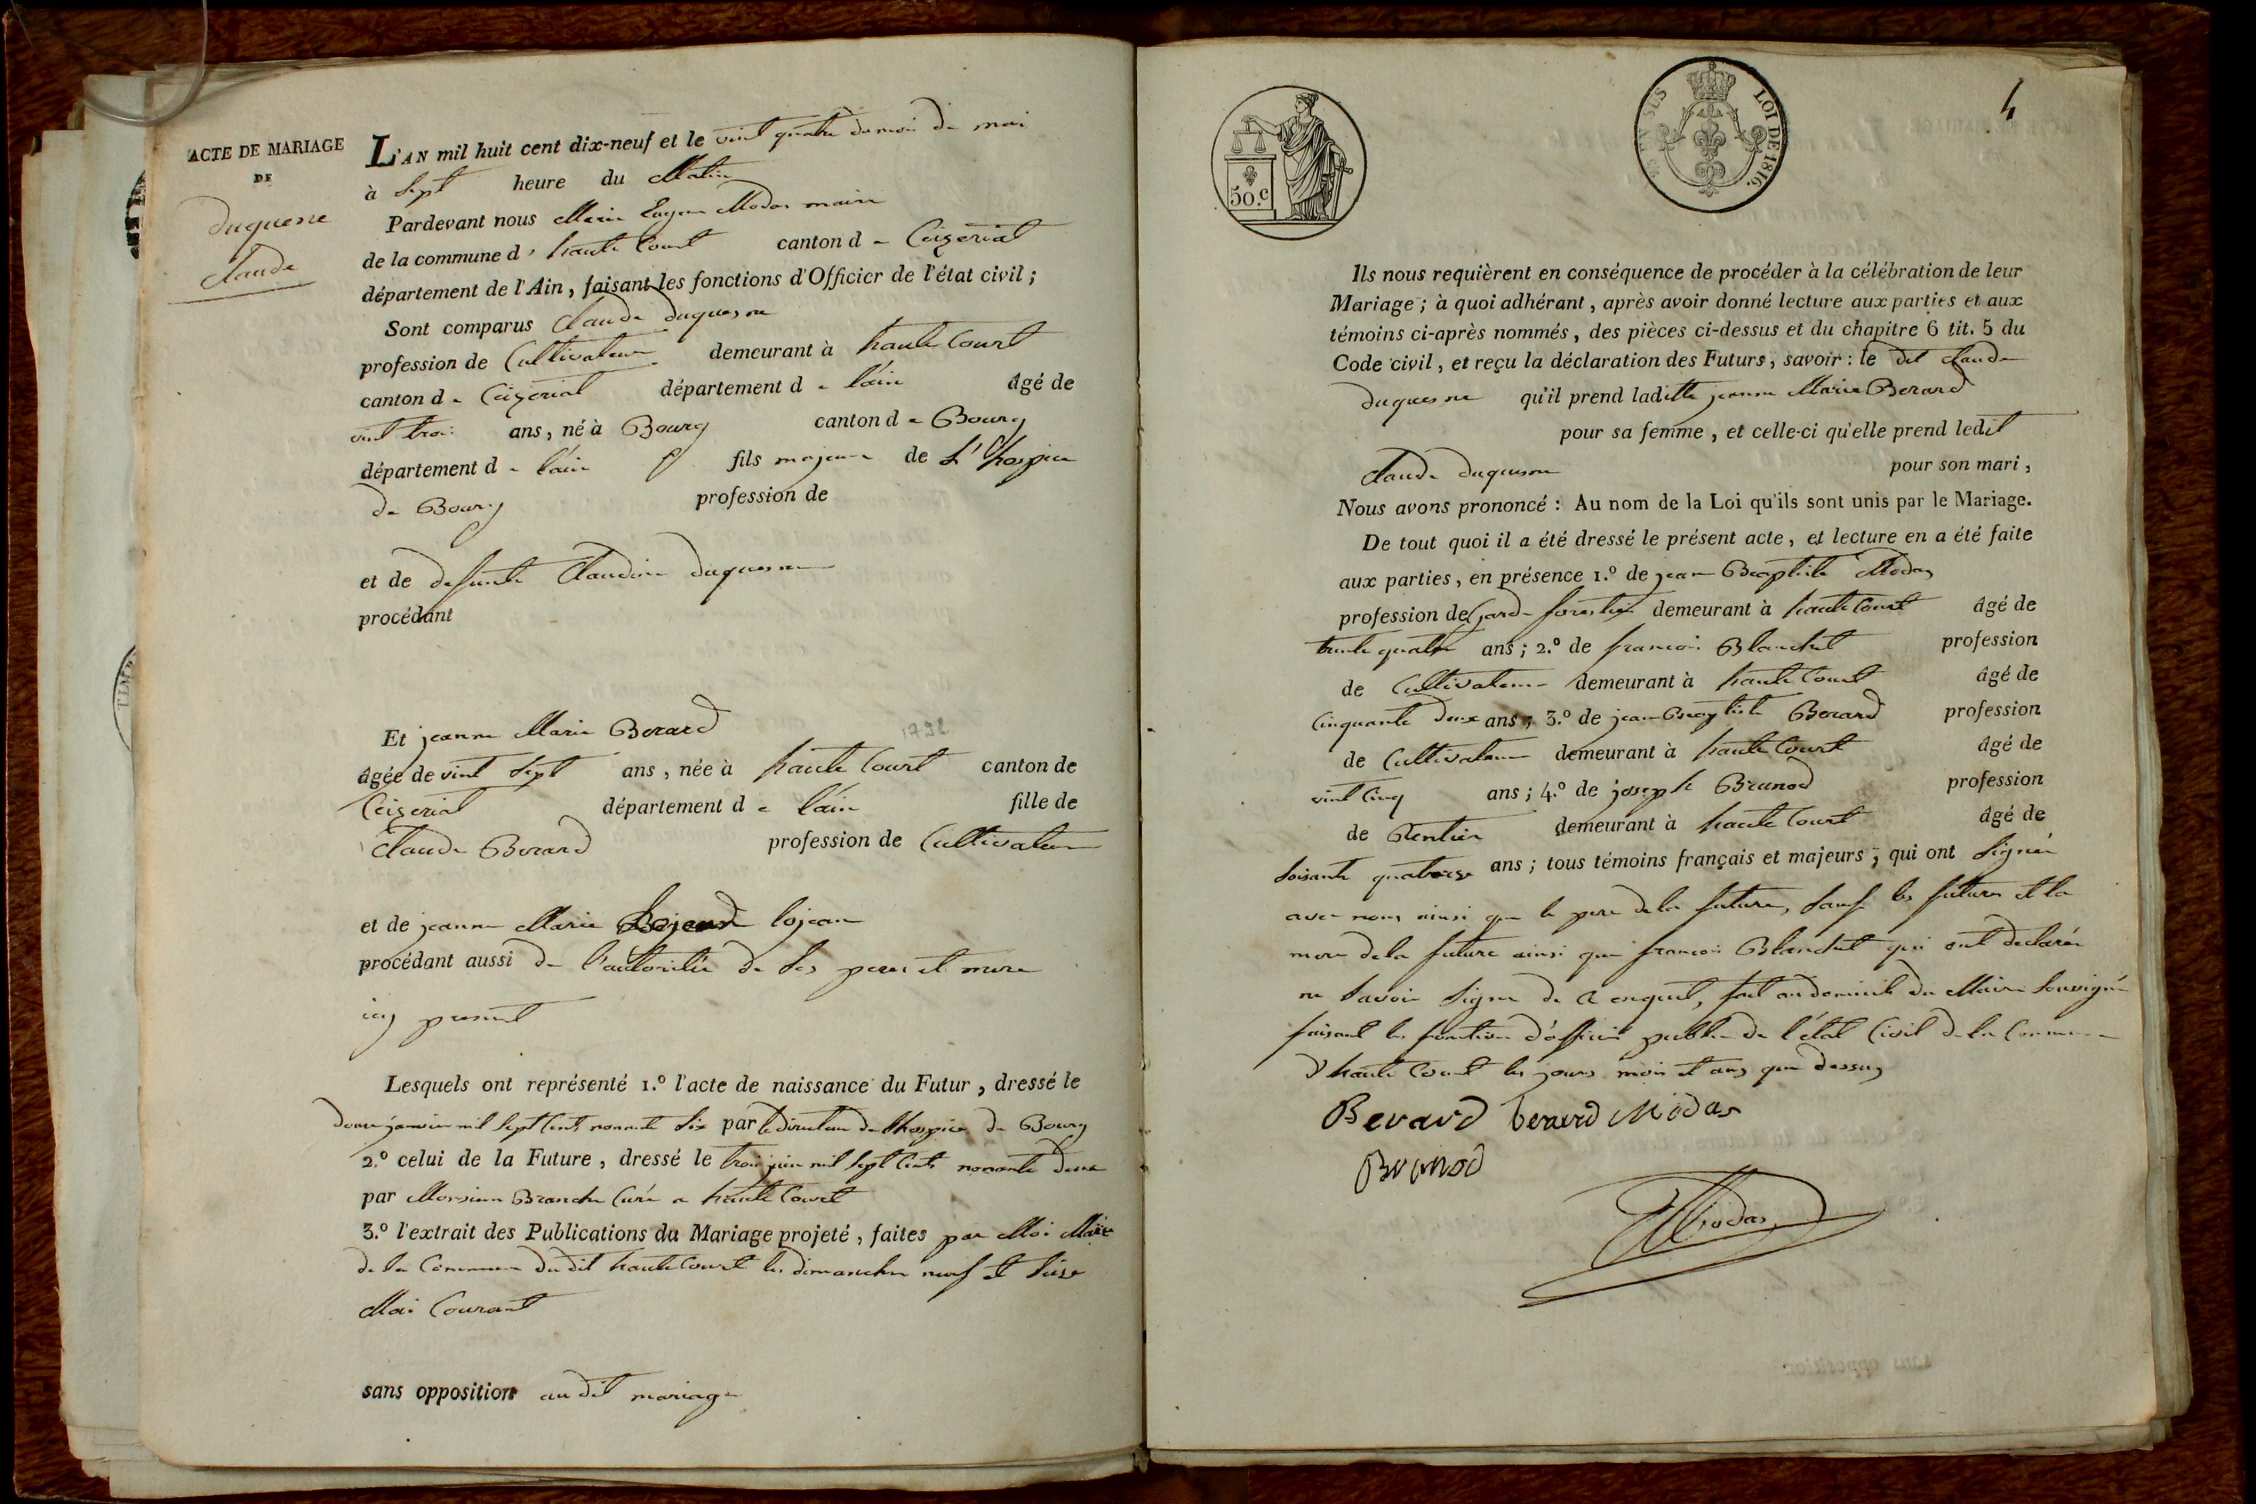 ACTE DE MARIAGE
DE
duquesne
claude
L'AN mil huit cent dix-neuf et le vint quatre du mois de mai
à sept heure du Matin
Pardevant nous Marie Eugene Modas maire
de la commune d'hautecourt canton de Ceizeriat
département de l'Ain, faisant les fonctions d'Officier de l'état civil;
Sont comparus Claude duquesne
profession de Cultivateur demeurant à hautecourt
canton de Ceizeriat département de l'ain âgé de
vint trois ans, né à Bourg canton de Bourg
département de l'ain fils majeur de L'hospice
de Bourg profession de
et de defunte Claudine duquesne
procédant
Et jeanne Marie Berard 1792
âgée de vint sept ans, née à haute Court canton de
Ceizeriat département de l'ain fille de
Claude Berard profession de Cultivateur
et de jeanne Marie lojean
procédant aussi de l'autoritée de ses peres et mere
icy present
Lesquels ont représenté 1.º l'acte de naissance du Futur, dressé le
douze janvier mil sept cent nonante six par le directeur de l'hospice de Bourg
2.º celui de la Future, dressé le trois juin mil sept cents nonante deux
par Monsieur Branche Curé a haute Court
3.º l'extrait des Publications du Mariage projeté, faites par Moi Maire
de la Commune du dit hautecourt les dimanches neuf et seize
Mai Courant
sans opposition au dit mariage
4
50.c
EN SUS
LOI DE 1816.
Ils nous requièrent en conséquence de procéder à la célébration de leur
Mariage; à quoi adhérant, après avoir donné lecture aux parties et aux
témoins ci-après nommés, des pièces ci-dessus et du chapitre 6 tit. 5 du
Code civil, et reçu la déclaration des Futurs, savoir: le dit claude
duquesne qu'il prend laditte jeanne Marie Berard
pour sa femme, et celle-ci qu'elle prend ledit
Claude duquesne pour son mari,
Nous avons prononcé: Au nom de la Loi qu'ils sont unis par le Mariage.
De tout quoi il a été dressé le présent acte, et lecture en a été faite
aux parties, en présence 1.º de jean Baptiste Modas
profession de Garde forestier demeurant à hautecourt âgé de
trente quatre ans; 2.º de francois Blanchet profession
de Cultivateur demeurant à hautecourt âgé de
Cinquante deux ans, 3.º de jean Baptiste Berard profession
de Cultivateur demeurant à hautecourt âgé de
vint Cinq ans; 4.º de joseph Brunod profession
de Rentier demeurant à hautecourt âgé de
soisante quatorze ans; tous témoins français et majeurs, qui ont signés
avec nous ainsi que le pere de la future, sauf les futures et la
mere de la future ainsi que francois Blanchet qui ont declarés
ne savoir signer de ce enquit, fait au domicile du Maire soussigné
faisant les fonction d'officier public de l'état Civil de la Commune
d'haute Court les jours mois et ans que dessus
Berard berard Modas
Brunod
Modas